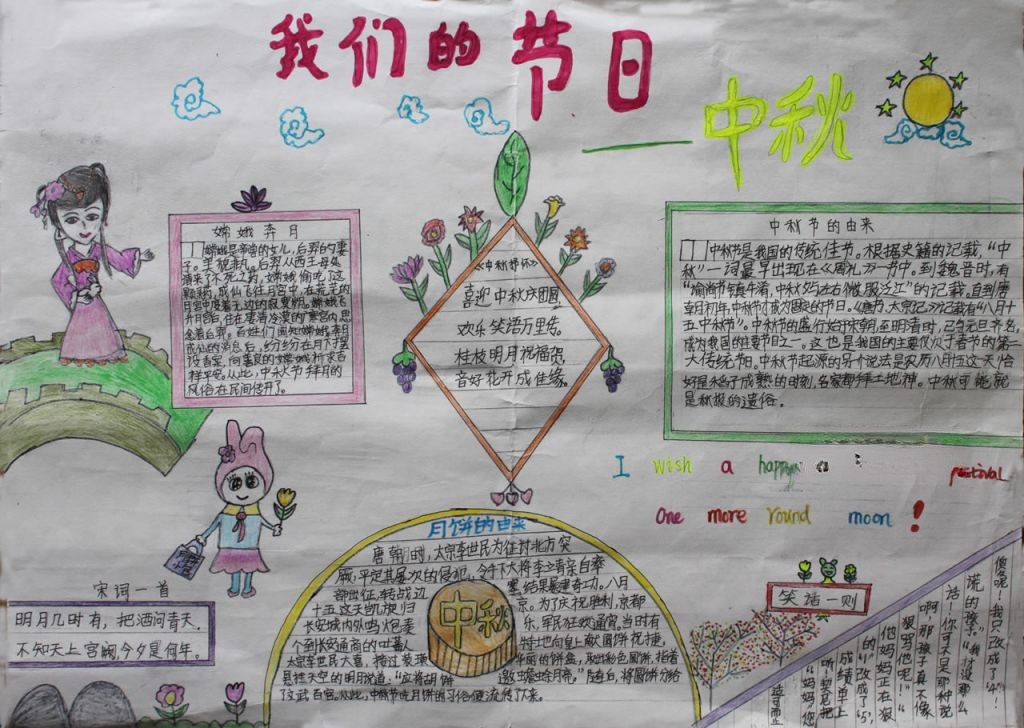 我们的节日
——中秋
嫦娥奔月
嫦娥是帝喾的女儿,后羿的妻
子。美貌非凡。后羿从西王母处
请来了不死之药,嫦娥偷吃了这
颗药,成仙飞往月宫中
月宫后,住在
念着后羿。百姓们闻知嫦娥奔月
成仙的消息后,纷纷在月下摆
设香案,向善良的嫦娥祈求吉
祥平安。从此,中秋节拜月的
风俗在民间传开了。
喜迎中秋庆团圆,
欢乐笑语万里传。
桂枝明月祝福花,
音好花开成佳缘。
中秋节的由来
中秋节是我国的传统佳节。根据史籍的记载,“中
秋”一词最早出现在《周礼》一书中。到魏晋时,有
的记载。直到唐
朝初年,中秋节才成为固定的节日。《唐书·太宗记》记载有“八月十
五中秋节”。中秋节的盛行始于宋朝,至明清时,已与元旦齐名,
成为我国的主要节日之一。这也是我国的主要仅次于春节的第二
大传统节日。中秋节起源的另个说法是:农历八月五这天恰
好是稻子成熟的时刻,各家都拜土地神。中秋可能就
是秋报的遗俗。
I wish a happy a
festival
One more round moon !
宋词一首
明月几时有,把酒问青天。
不知天上宫阙,今夕是何年。
月饼的由来
唐朝时,太宗李世民为征讨北方突
厥,平定其屡次的侵犯,令手下大将李靖亲自率
都出征,转战边塞,结果屡建奇功。八月
十五这天凯旋归京。为了庆祝胜利,京都
长安城内外鸣炮奏乐,军民狂欢通宵,当时有
个到长安通商的吐蕃人特地向皇上献圆饼祝捷,
太宗李世民大喜,接过装璜华丽的饼盒,取出彩色圆饼,指着
悬挂天空的明月说道:“应将胡饼邀蟾蜍。”随后,将圆饼分给
了文武百官。从此,中秋节吃月饼的习俗便流传下来。
中秋
笑话一则
傻呢!我只改成了“4”!
谎的孩子。”“我才没那么
话!你可不是那种说
啊,那孩子真不像
狠骂他呢!”
他妈妈正在狠
的“1”改成了“5”,
成绩单上
听说
“妈妈,您